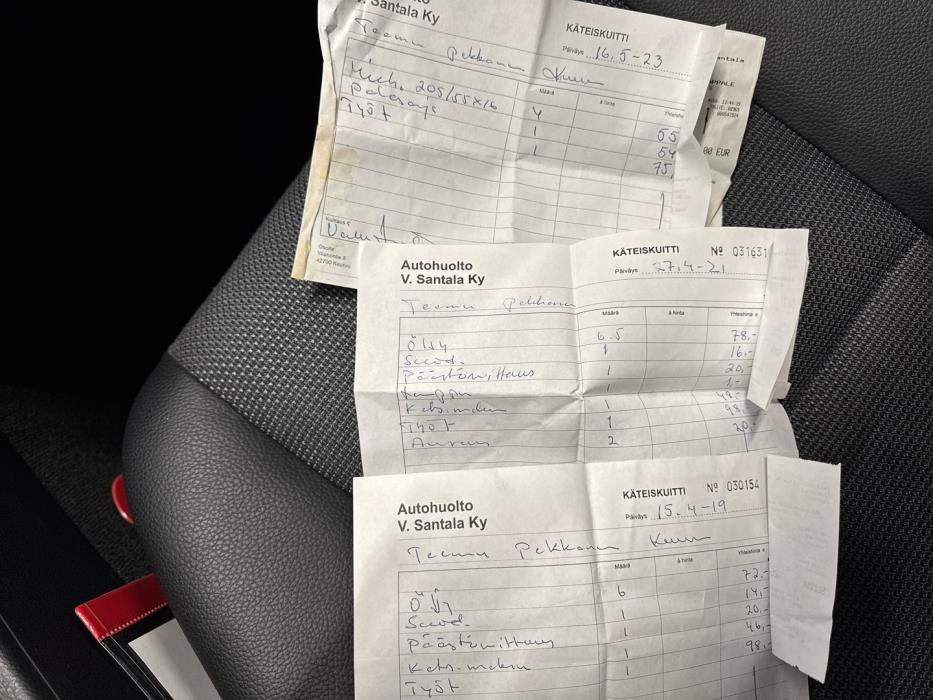 V. Santala Ky
KÄTEISKUITTI
Päiväys 16.5-23
Teemu Pekkanen
Määrä à hinta
Mich. 205/55x16 4 55
1 54
Työt 1 75,
Kuittaus
Osoite
42700 Keuruu
00 EUR
Autohuolto
V. Santala Ky
KÄTEISKUITTI Nº 031631
Päiväys 27.4-21
Teemu Pekkanen
Määrä à hinta Yhteishinta €
Öljy 6.5 78,-
Suod. 1 16,-
Päästömittaus 1 20,-
1 1,-
Kats. 1 48,-
Työt 1 98,-
2 20,-
Autohuolto
V. Santala Ky
KÄTEISKUITTI Nº 030154
Päiväys 15.4-19
Teemu Pekkanen
Määrä à hinta Yhteishinta €
Öljy 6 72,-
Suod. 1 14,-
Päästömittaus 1 20,-
Kats. 1 46,-
Työt 1 98,-